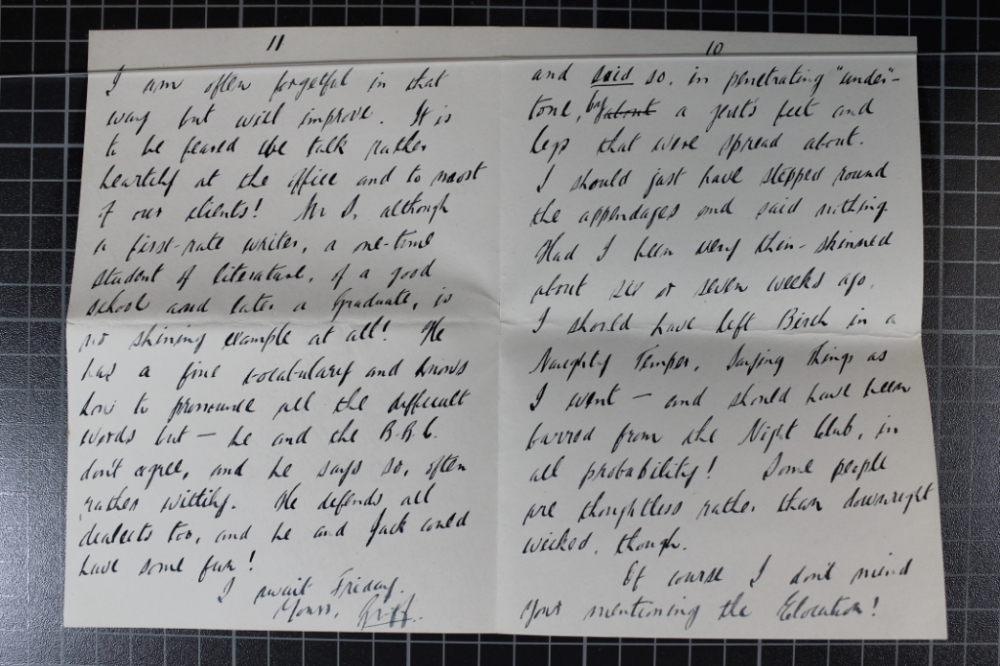 10
and said so, in penetrating "under"-
tone, by about a gent's feet and
legs that were spread about.
I should just have stepped round
the appendages and said nothing
Had I been very thin-skinned
about six or seven weeks ago,
I should have left Birch in a
Naughty Temper, saying things as
I went — and should have been
barred from the Night Club, in
all probability! Some people
are thoughtless rather than downright
wicked, though.
Of course I don't mind
your mentioning the Elocution!
11
I am often forgetful in that
way but will improve. It is
to be feared we talk rather
heartily at the office and to most
of our clients! Mr S. although
a first-rate writer, a one-time
student of literature, of a good
school and later a Graduate, is
no shining example at all! He
has a fine vocabulary and knows
how to pronounce all the difficult
words but — he and the B.B.C.
don't agree, and he says so, often
rather wittily. He defends all
dialects too, and he and Jack could
have some fun!
I await Friday.
Yours, Griff.